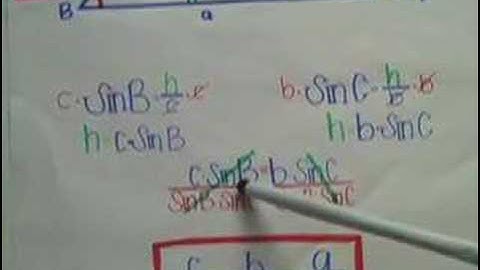 B a
c·SinB·h/c·c b·SinC·h/b·b
h·c·SinB h·b·SinC
c·SinB=b·SinC
SinB·Sin SinC
c b a